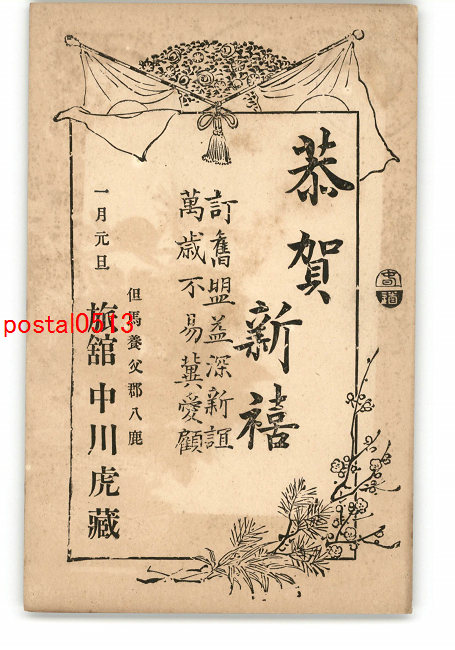 恭賀
新禧
訂舊盟益深新誼
萬歳不易冀愛顧
一月元旦
但馬養父郡八鹿
旅舘 中川虎藏
postal0513